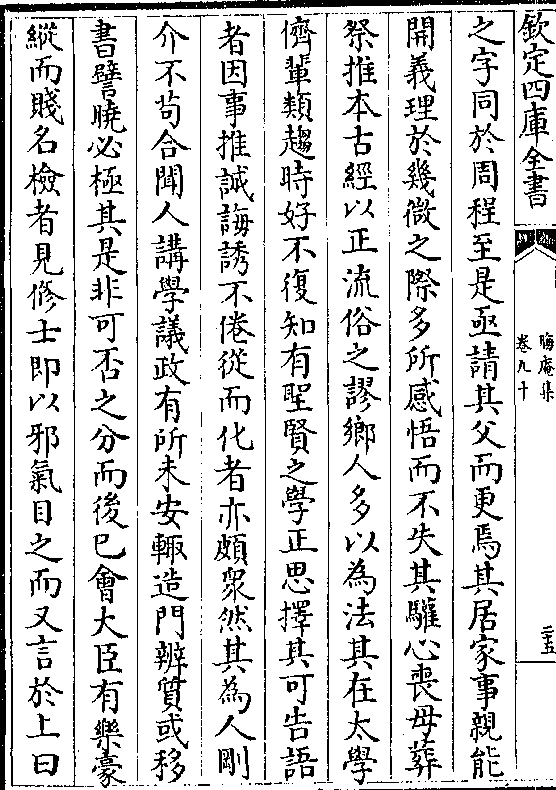 欽定四庫全書
晦庵集
卷九十
二五
之字同於周程至是亟請其父而更焉其居家事親能
開義理於幾微之際多所感悟而不失其驩心喪母葬
祭推本古經以正流俗之謬鄉人多以為法其在太學
儕輩類趨時好不復知有聖賢之學正思擇其可告語
者因事推誠誨誘不倦從而化者亦頗衆然其為人剛
介不茍合聞人講學議政有所未安輙造門辨質或移
書譬曉必極其是非可否之分而後已會大臣有樂豪
縱而賤名檢者見修士即以邪氣目之而又言於上曰